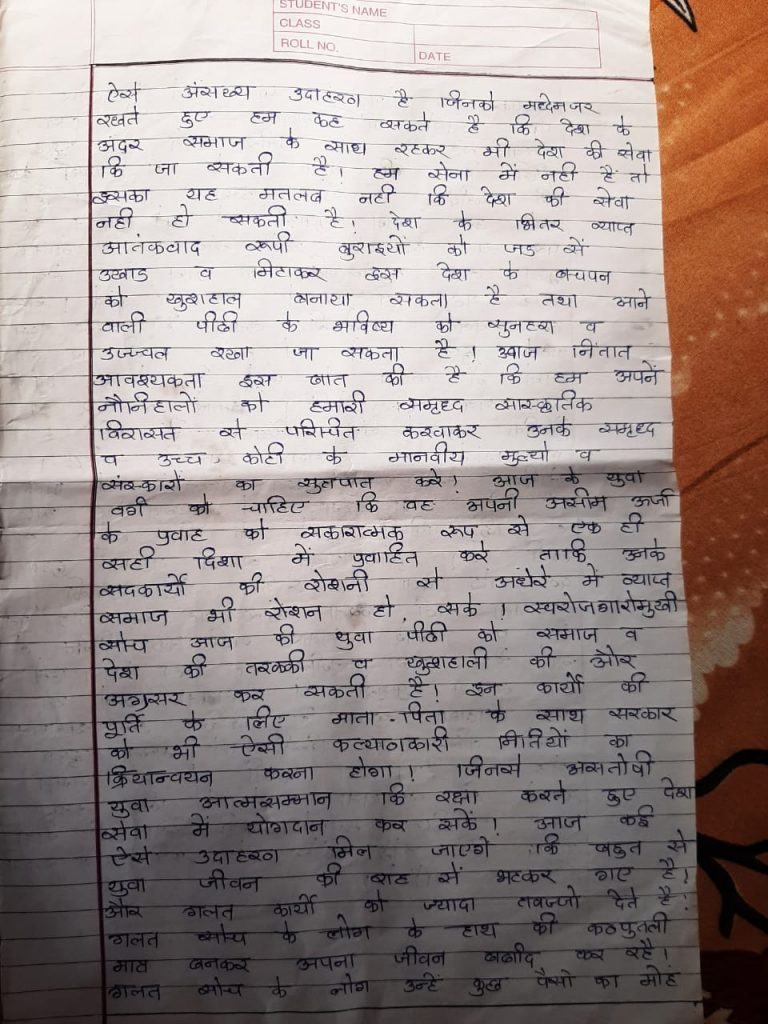 STUDENT'S NAME
CLASS
ROLL NO.
DATE
ऐसे अंसख्य उदाहरण है जिनको मद्देनजर
रखते हुए हम कह सकते है कि देश के
अंदर समाज के साथ रहकर भी देश की सेवा
कि जा सकती है! हम सेना में नही है तो
इसका यह मतलब नही कि देश की सेवा
नही हो सकती है! देश के भितर व्याप्त
आतंकवाद रूपी बुराइयों को जड से
उखाड व मिटाकर इस देश के बचपन
को खुशहाल बनाया सकता है तथा आने
वाली पीढी के भविष्य को सुनहरा व
उज्ज्वल रखा जा सकता है! आज नितांत
आवश्यकता इस बात की है कि हम अपनें
नौनिहालों को हमारी समृध्द सांस्कृतिक
विरासत से परिचित करवाकर उनके समृध्द
व उच्च कोटी के मानवीय मुल्यो व
संस्कारों का सुत्रपात करे! आज के युवा
वर्ग को चाहिए कि वह अपनी असीम ऊर्जा
के प्रवाह को सकारात्मक रूप से एक ही
सही दिशा में प्रवाहित करे ताकि उनके
सदकार्यो की रोशनी से अंधेरे में व्याप्त
समाज भी रोशन हो सके! स्वरोजगारोमुखी
सोच आज की युवा पीढी को समाज व
देश की तरक्की व खुशहाली की और
अग्रसर कर सकती है! इन कार्यो की
पूर्ति के लिए माता-पिता के साथ सरकार
को भी ऐसी कल्याणकारी नितियों का
क्रियान्वयन करना होगा! जिनसे असतोषी
युवा आत्मसम्मान कि रक्षा करते हुए देश
सेवा में योगदान कर सकें! आज कई
ऐसे उदाहरण मिल जाएगे कि बहुत से
युवा जीवन की राह से भटकर गए है!
और गलत कार्यो को ज्यादा तवज्जो देते है!
गलत सोच के लोग के हाथ की कठपुतली
मात्र बनकर अपना जीवन बर्बाद कर रहे!
गलत सोच के लोग उन्हें कुछ पैसो का मोह